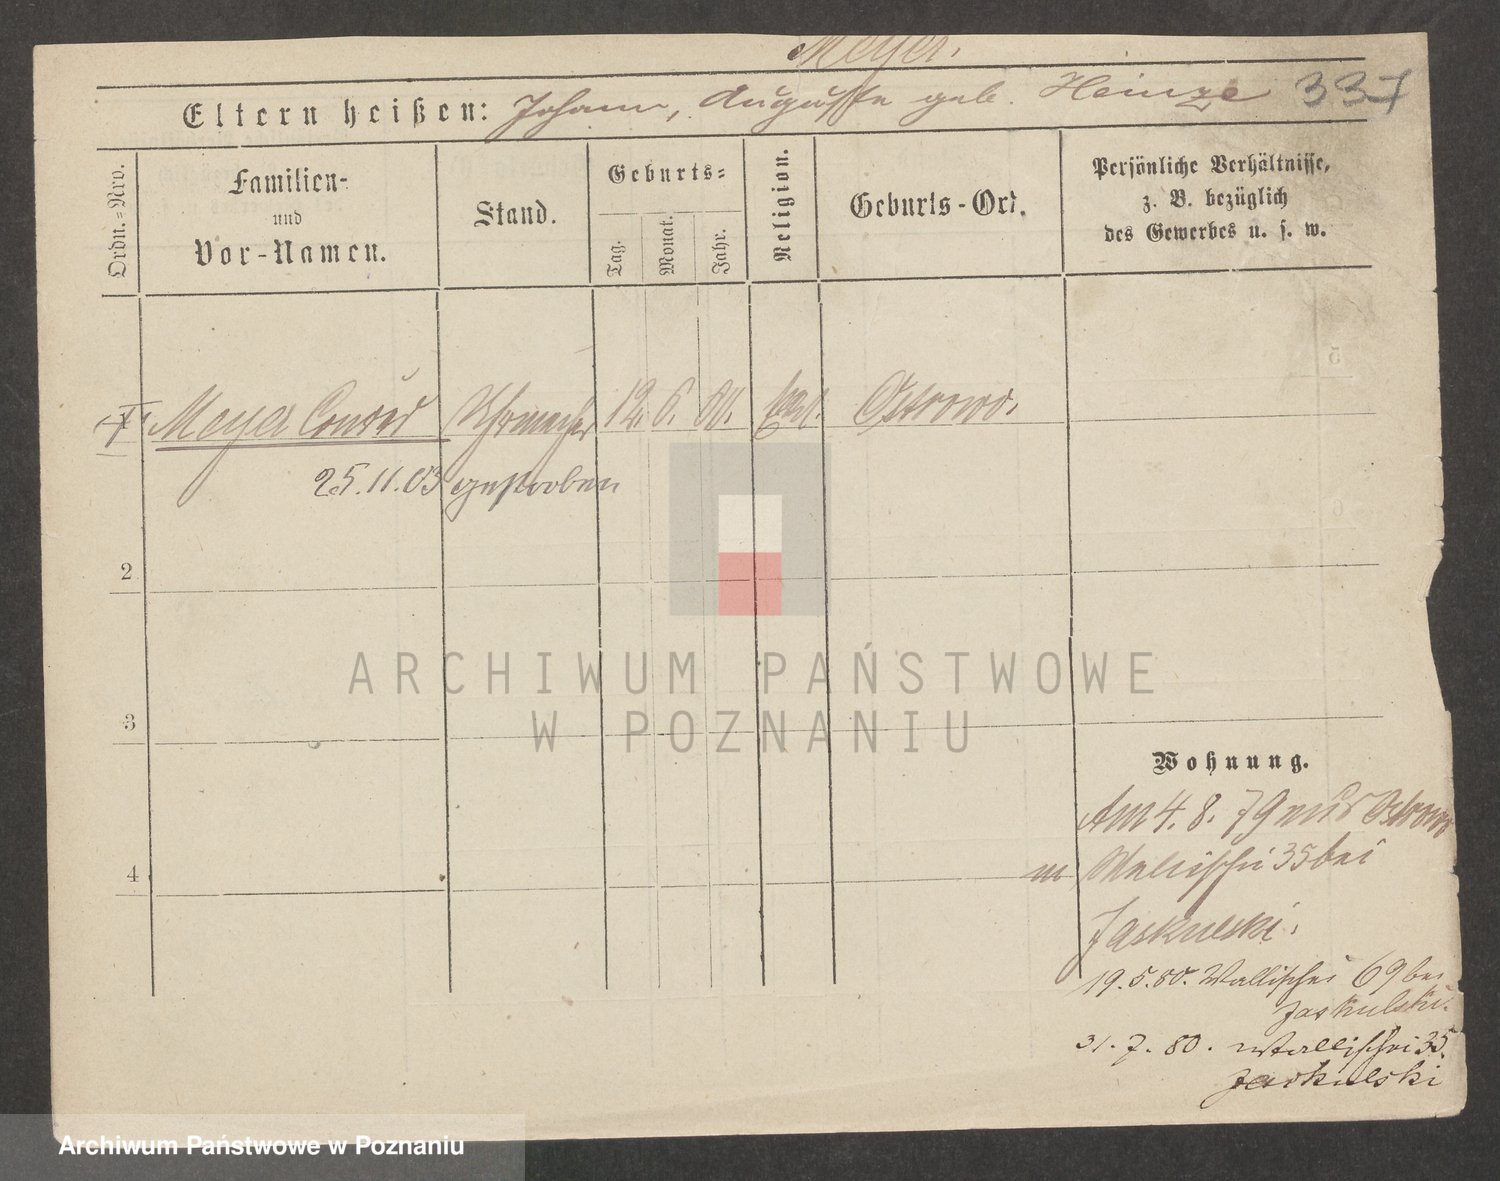 Meyer.
337
Eltern heißen: Johann, Auguste geb. Heinze
Ordn.=Nro.
Familien-
und
Vor-Namen.
Stand.
Geburts=
Tag.
Monat.
Jahr.
Religion.
Geburts-Ort.
Persönliche Verhältnisse,
z. B. bezüglich
des Gewerbes u. s. w.
Meyer Conrad Uhrmacher 12. 6. Ostrowo.
25.11.03 gestorben
2
3
4
Wohnung.
Am 4. 8. 79 aus Ostrowo
Wallischei 35 bei
Jaskulski.
19.5.80. Wallischei 69 bei
Jaskulski.
31.7.80. Wallischei 35.
Jaskulski
ARCHIWUM PAŃSTWOWE
W POZNANIU
Archiwum Państwowe w Poznaniu